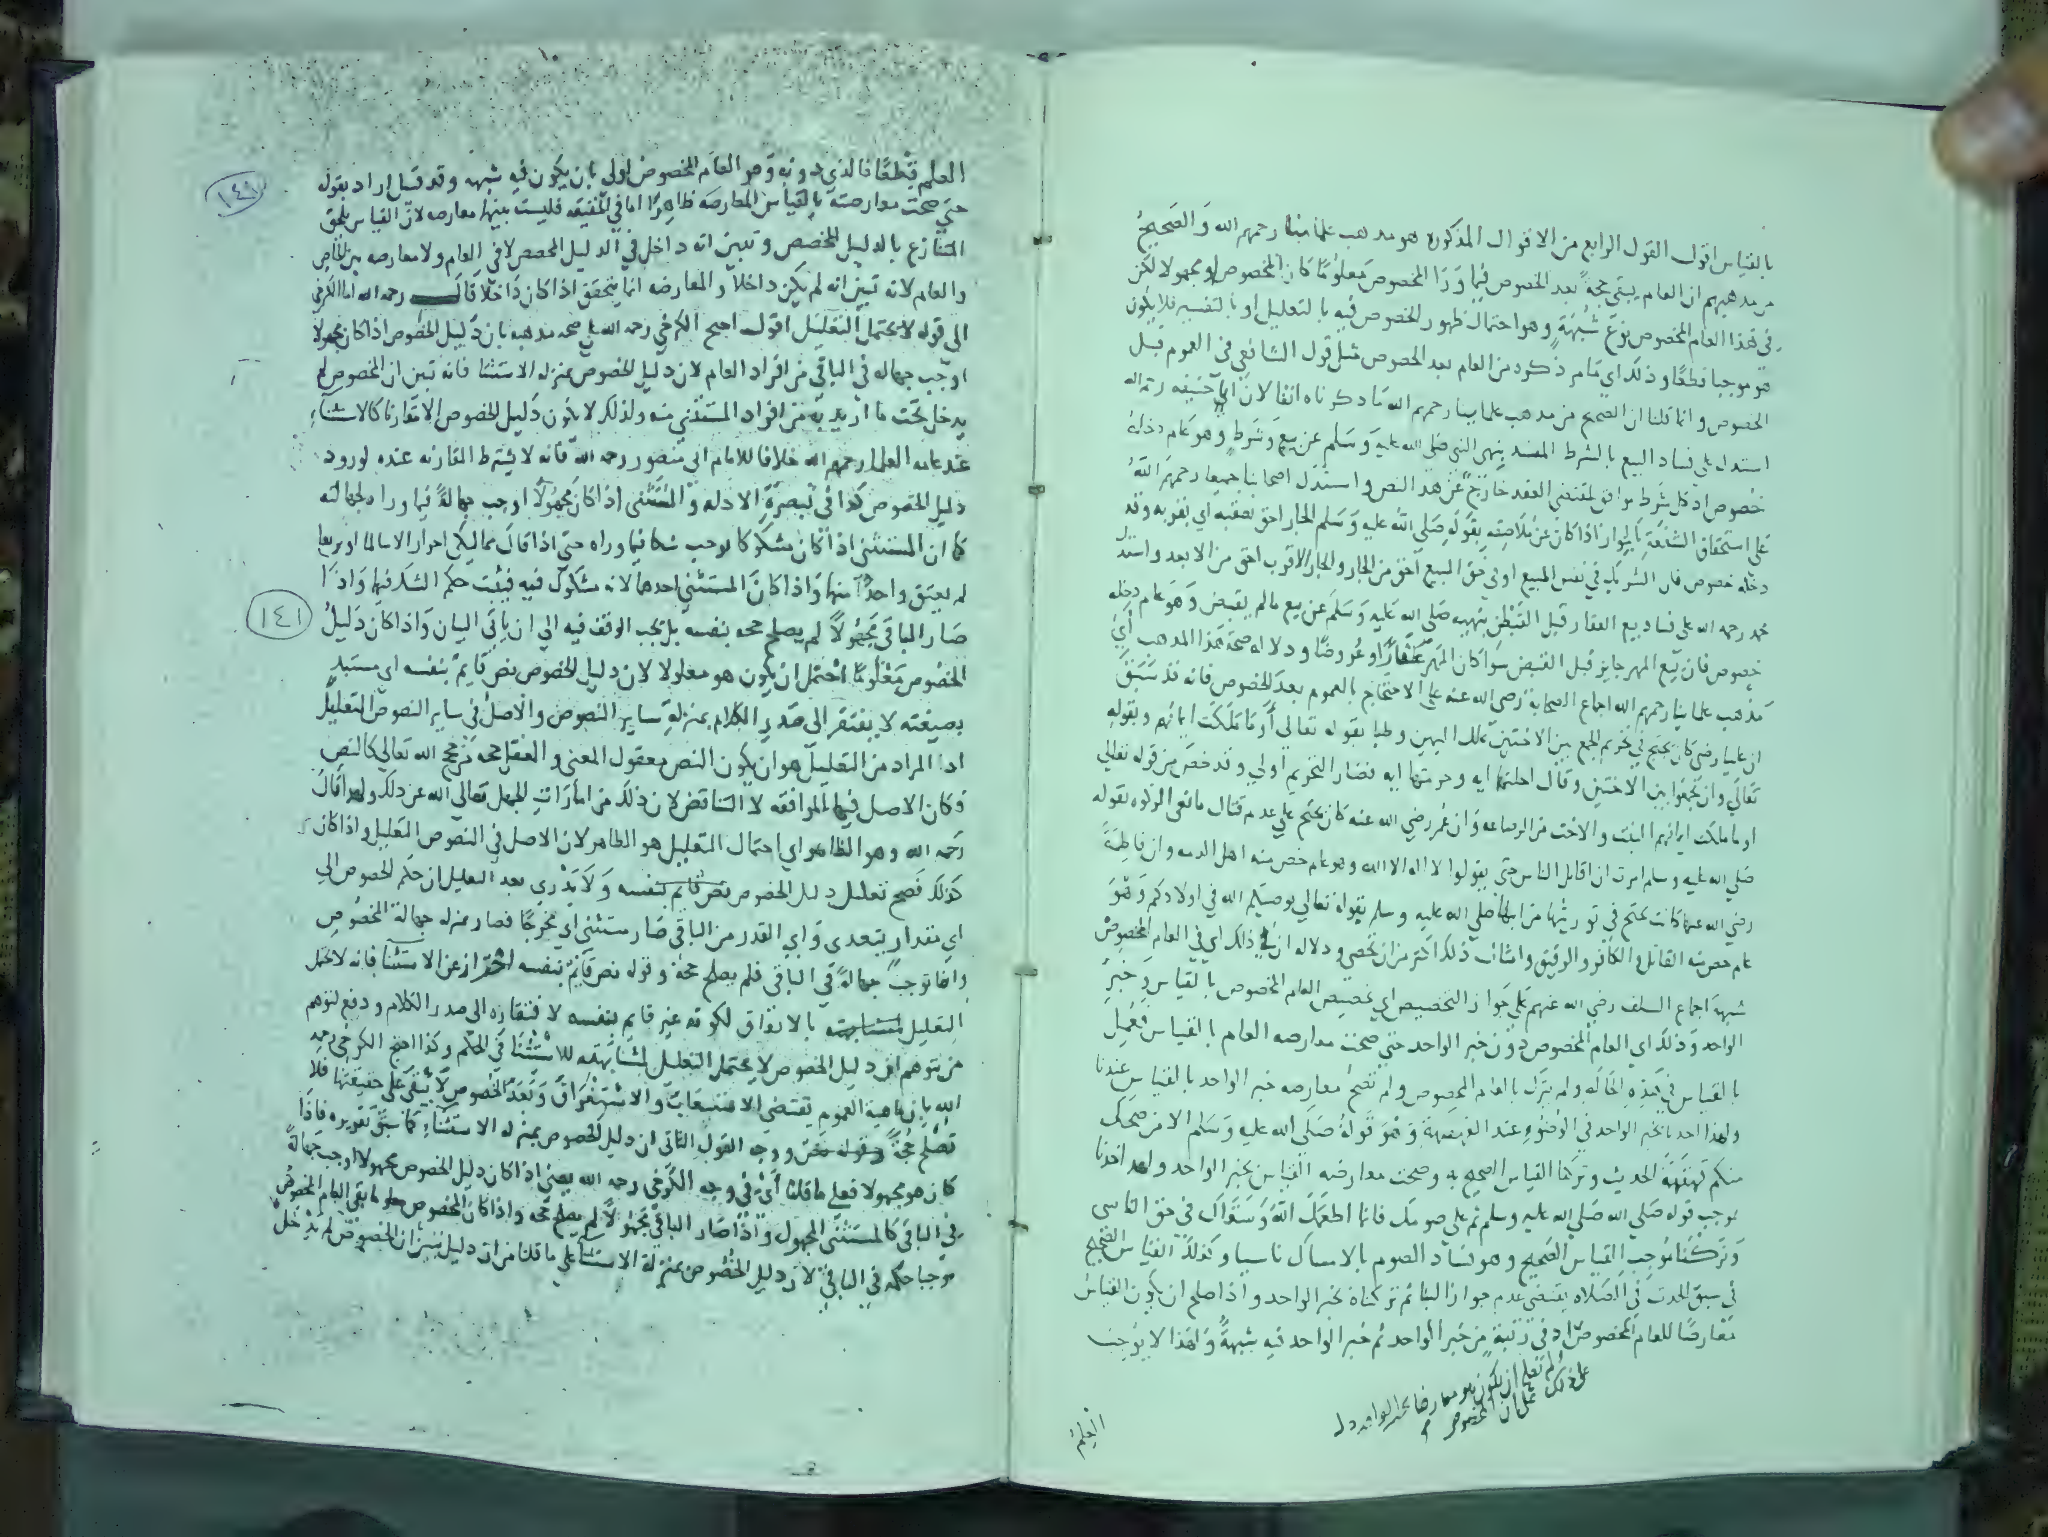 بالقياس اقول القول الرابع من الاقوال المذكورة هو مذهب علمائنا رحمهم الله والصحيح
من مذهبهم ان العام يبقي حجة بعد الخصوص فيما ورا الخصوص معلوما كان المخصوص او مجهولا لكن
في هذا العام المخصوص نوع شبهة وهو احتمال ظهور الخصوص فيه بالتعليل او بالتفسير فلا يكون
هو موجبا قطعا وذلك اي مامر ذكره من العام بعد الخصوص مثل قول الشافعي في العموم قبل
الخصوص وانما قلنا ان الصحيح من مذهب علمائنا رحمهم الله ما ذكرناه انفا لان ابا حنيفه رحمه الله
استدل على فساد البيع بالشرط المفسد بنهى النبي صلى الله عليه وسلم عن بيع وشرط وهو عام دخله
خصوص اذ كل شرط يوافق لمقتضى العقد خارج عن هذا النص واستدل اصحابنا جميعا رحمهم الله
على استحقاق الشفعة بالجوار اذا كان عن ملاصقه بقوله صلى الله عليه وسلم الجار احق بصقبه اي بقربه وقد
دخله خصوص فان الشريك في نفس المبيع او في حق المبيع احق من الجار والجار الاقرب احق من الابعد واستدل
محمد رحمه الله على فساد بيع العقار قبل القبض بنهيه صلى الله عليه وسلم عن بيع مالم يقبض وهو عام دخله
خصوص فان بيع المهر جايز قبل القبض سوا كان المهر عقارا او عروضا ودلاله صحة هذا المذهب اي
مذهب علمائنا رحمهم الله اجماع الصحابة رضى الله عنه على الاحتجاج بالعموم بعد الخصوص فانه قد سبق
ان عليا رضي كان يحتج في تحريم الجمع بين الاختين بملك اليمين وطيا بقوله تعالى او ما ملكت ايمانهم وبقوله
تعالى وان تجمعوا بين الاختين وقال احلتهما ايه وحرمتهما ايه فصار التحريم اولي وقد خص من قوله تعالي
او ما ملكت ايمانهم البنت والاخت من الرضاعه وان عمر رضي الله عنه كان يحتج على عدم قتال مانعى الزكوه بقوله
صلى الله عليه وسلم امرت ان اقاتل الناس حتى يقولوا لا اله الا الله وهو عام خص منه اهل الذمه وان فاطمة
رضي الله عنها كانت تحتج في توريثها من ابيها صلى الله عليه وسلم بقوله تعالى يوصيكم الله في اولادكم وهو
عام خص منه القاتل والكافر والرقيق وامثال ذلك اكثر من ان تحصى ودلاله ان في ذلك اي في العام المخصوص
شبهة اجماع السلف رضي الله عنهم على جواز التخصيص اي تخصيص العام المخصوص بالقياس وخبر
الواحد وذلك اي العام المخصوص دون خبر الواحد حتى صحت معارضه العام بالقياس فعمل
بالقياس في هذه الحاله ولم يترك بالعام المخصوص ولم تصح معارضه خبر الواحد بالقياس عندنا
ولهذا اخذ بخبر الواحد في الوضوء عند القهقهة وهو قوله صلى الله عليه وسلم الا من ضحك
منكم قهقهة الحديث وتركنا القياس الصحيح به وصحت معارضه القياس بخبر الواحد ولهذا اخذنا
بموجب قوله صلى الله صلي الله عليه وسلم تم على صومك فانما اطعمك الله وسقاك في حق الناسى
وتركنا موجب القياس الصحيح وهو فساد الصوم بالامساك ناسيا وكذلك القياس الصحيح
في سبق الحدث في الصلاه يقتضى عدم جواز البنا ثم تركناه بخبر الواحد واذا صلح ان يكون القياس
معارضا للعام المخصوص اذ في رتبة من خبر الواحد ثم خبر الواحد فيه شبهة ولهذا لا يوجب
العلم
العلم قطعا فالذي دونه وهو العام المخصوص اولى بان يكون فيه شبهه وقد قيل اراد بقوله
حتى صحت معارضته بالقياس المعارضه ظاهرا اما في الحقيقه فليست بينهما معارضه لان القياس يلحق
المتنازع بالدليل المخصص وتبين انه داخل في الدليل المخصص لا في العام ولا معارضه بين الخاص
والعام لانه تبين انه لم يكن داخلا والمعارضه انما يتحقق اذا كان داخلا قال رحمه الله اما الكرخي
الى قوله لا يحتمل التعليل اقول احتج الكرخي رحمه الله على صحه مذهبه بان دليل الخصوص اذا كان مجهولا
اوجب جهاله في الباقي من افراد العام لان دليل الخصوص بمنزله الاستثنا فانه تبين ان المخصوص لم
يدخل تحت ما اريد به من افراد المستثنى منه ولذلك لا يكون دليل الخصوص الا مقارنا كالاستثناء
عند عامه العلما رحمهم الله خلافا للامام ابي منصور رحمه الله فانه لا يشترط المقارنه عنده لورود
دليل الخصوص كذا في تبصرة الادله والمستثنى اذا كان مجهولا اوجب جهالة فيما وراه لجهالته
كما ان المستثنى اذا كان مشكوكا يوجب شكا فيما وراه حتى اذا قال مماليكي احرار الا سالما او بريعا
لم يعتق واحدا منهما واذا كان المستثنى احدهما لانه مشكوك فيه فيثبت حكم الشك فيهما واذا
صار الباقي مجهولا لم يصلح حجه بنفسه بل يجب الوقف فيه الى ان ياتي البيان واذا كان دليل
الخصوص معلوما احتمل ان يكون هو معلولا لان دليل الخصوص نص قايم بنفسه اي مستبد
بصيغته لا يفتقر الى صدر الكلام بمنزلة ساير النصوص والاصل في ساير النصوص التعليل
اذا المراد من التعليل هو ان يكون النص معقول المعنى والعقل حجه من حجج الله تعالي كالنص
فكان الاصل فيها الموافقه لا التناقض لان ذلك من امارات الجهل تعالي الله عن ذلك ولهذا قال
رحمه الله وهو الظاهر اي احتمال التعليل هو الظاهر لان الاصل في النصوص التعليل واذا كان
كذلك فصح تعليل دليل الخصوص نص قايم بنفسه ولا يدري بعد التعليل ان حكم الخصوص الي
اي مقدار يتعدى واي القدر من الباقي صار مستثنى اي مخرجا فصار بمنزله جهالة الخصوص
وانها توجب جهالة في الباقي فلم يصلح حجة وقوله نص قايم بنفسه احتراز عن الاستثنا فانه لا يحتمل
التعليل بالاتفاق لكونه غير قايم بنفسه لافتقاره الى صدر الكلام ودفع لتوهم
من يتوهم ان دليل الخصوص لا يحتمل التعليل لمشابهته للاستثنا في الحكم وكذا احتج الكرخي رحمه
الله بان ماهية العموم تقتضى الاستيعاب والاستغراق وبعد الخصوص لا يبقى على حقيقتها فلا
تصلح حجة ووجه القول الثاني ان دليل الخصوص بمنزله الاستثناء كما سبق تقريره فاذا
كان هو مجهولا فعلى ما قلنا اي في وجه الكرخي رحمه الله يعني اذا كان دليل الخصوص مجهولا اوجب جهالة
في الباقي كالمستثنى المجهول واذا صار الباقي مجهولا لم يصلح حجه واذا كان المخصوص معلوما بقى العام المخصوص
موجبا حكمه في الباقي لان دليل الخصوص بمنزلة الاستثنا على ما قلنا من انه دليل تبين ان المخصوص لم يدخل
١٤١